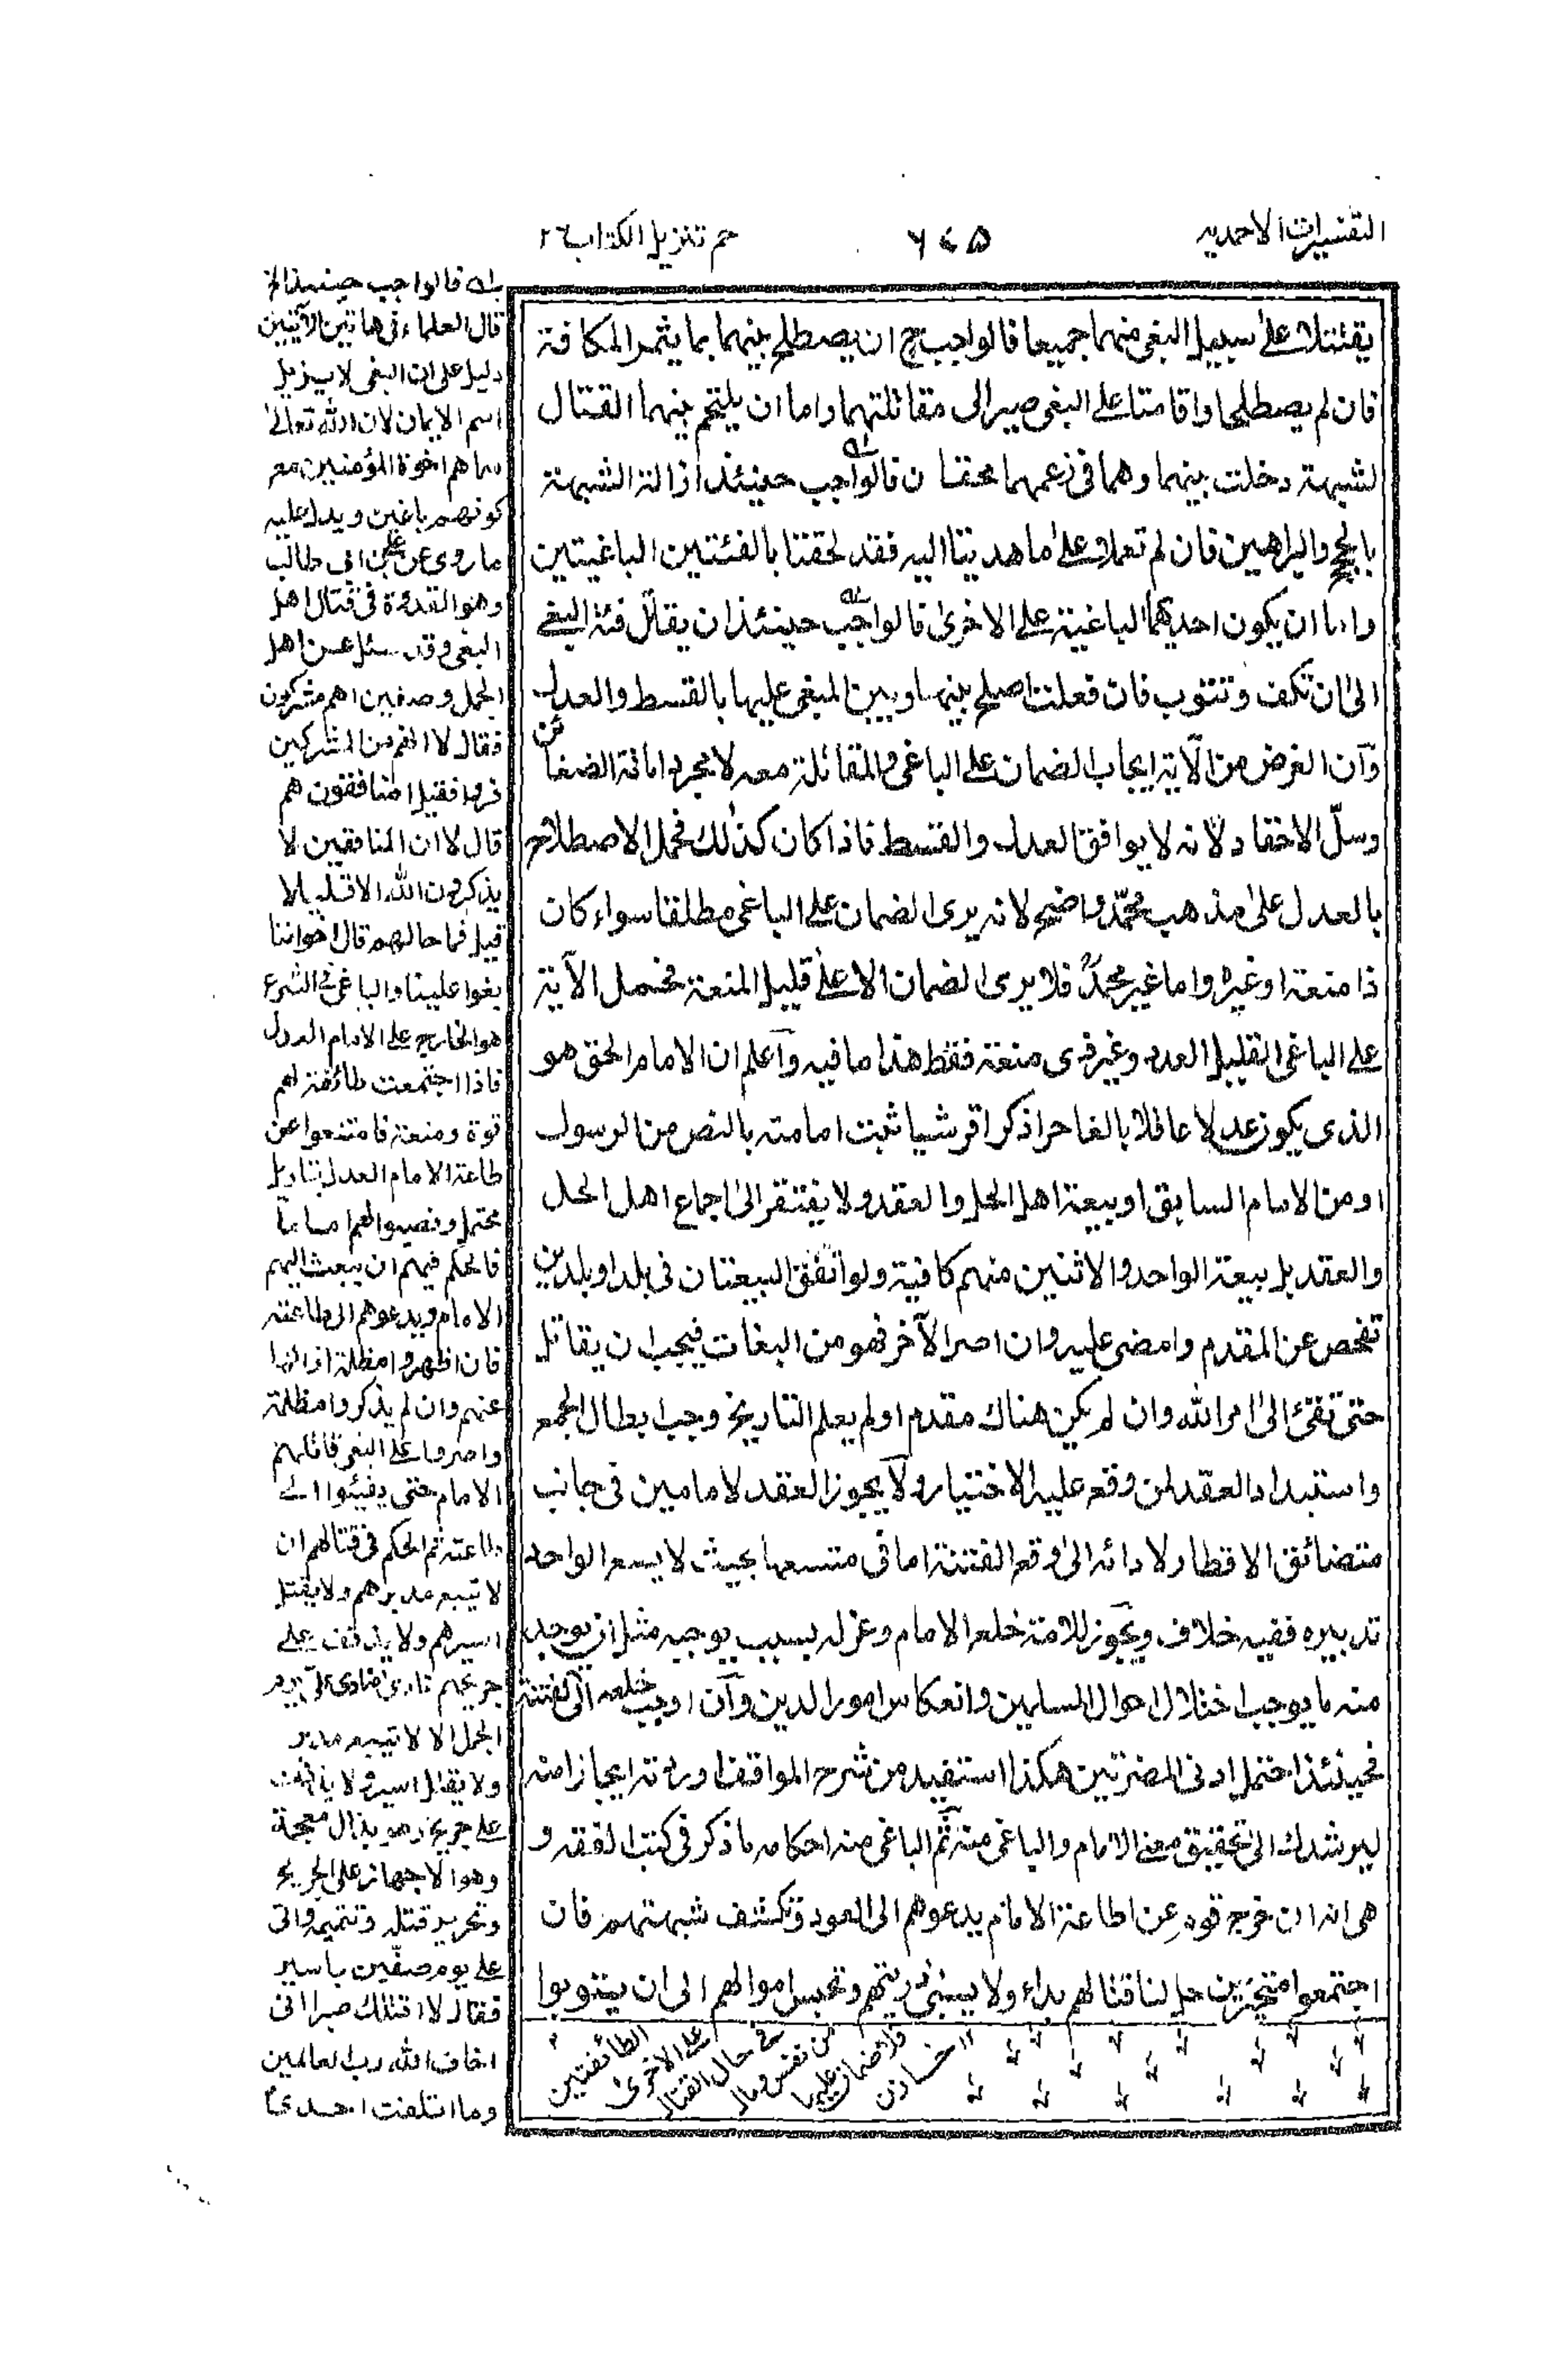 التفسيرات الاحمديه
٦٧٥
حم تنزيل الكتاب ٢٦
يقتتلا على سبيل البغى منهما جميعا فالواجب ح ان يصطلح بينهما بما يثمر المكافة
فان لم يصطلحا واقامتا على البغى صير الى مقاتلتهما واما ان يلتحم بينهما القتال
لشبهة دخلت بينهما وهما فى زعمهما محقتان فالواجب حينئذ ازالة الشبهة
بالحجج والبراهين فان لم تعملا على ما هديتا اليه فقد لحقتا بالفئتين الباغيتين
واما ان يكون احديهما الباغية على الاخرى فالواجب حينئذ ان يقاتل فئة البغى
الى ان تكف وتتوب فان فعلت اصلح بينهما وبين المبغى عليها بالقسط والعدل
وان الغرض من الآية ايجاب الضمان على الباغى والمقاتلة معه لا مجرد اماتة الضغائن
وسل الاحقاد لانه لا يوافق العدل والقسط فاذا كان كذلك فحمل الاصطلاح
بالعدل على مذهب محمد واضح لانه يرى الضمان على الباغى مطلقا سواء كان
ذا منعة او غيره واما غير محمد فلا يرى الضمان الا على قليل المنعة فحمل الآية
على الباغى القليل العدد وغير ذى منعة فقط هذا ما فيه واعلم ان الامام الحق هو
الذى يكون عدلا عاقلا بالغا حرا ذكرا قرشيا ثبت امامته بالنص من الرسول
او من الامام السابق او ببيعة اهل الحل والعقد ولا يفتقر الى اجماع اهل الحل
والعقد بل بيعة الواحد والاثنين منهم كافية ولو اتفق البيعتان فى بلد او بلدين
تفحص عن المقدم وامضى عليه وان اصر الآخر فهو من البغات فيجب ان يقاتل
حتى تفئ الى امر الله وان لم يكن هناك مقدم او لم يعلم التاريخ وجب ابطال الجمع
واستبداد العقد لمن وقع عليه الاختيار ولا يجوز العقد لامامين فى جانب
متضائق الاقطار لادائه الى وقع الفتنة اما فى متسعها بحيث لا يسع الواحد
تدبيره ففيه خلاف ويجوز للامة خلع الامام وعزله بسبب يوجبه مثل ان يوجد
منه ما يوجب اختلال احوال المسلمين وانعكاس امور الدين وان اوجب خلعه الى الفتنة
فحينئذ احتمل ادنى المضرتين هكذا استفيد من شرح المواقف اوردته ايجازا منه
ليرشدك الى تحقيق معنى الامام والباغى منه ثم الباغى منه احكامه ما ذكر فى كتب الفقه و
هى انه ان خرج قوم عن اطاعة الامام يدعوهم الى العود وتكشف شبهتهم فان
اجتمعوا متحيزين حل لنا قتالهم بداء ولا يسبى ذريتهم وتحبس اموالهم الى ان يتوبوا
قوله فالواجب حينئذ الخ
قال العلماء فى هاتين الآيتين
دليل على ان البغى لا يزيل
اسم الايمان لان الله تعالى
سماهم اخوة المؤمنين مع
كونهم باغين ويدل عليه
ما روى عن على بن ابى طالب
وهو القدوة فى قتال اهل
البغى وقد سئل عن اهل
الجمل وصفين اهم مشركون
فقال لا انهم من المشركين
فروا فقيل امنافقون هم
قال لا ان المنافقين لا
يذكرون الله الا قليلا
قيل فما حالهم قال اخواننا
بغوا علينا والباغى فى الشرع
هو الخارج على الامام العدل
فاذا اجتمعت طائفة لهم
قوة ومنعة فامتنعوا عن
طاعة الامام العدل بتاويل
محتمل ونصبوا لهم اماما
فالحكم فيهم ان يبعث اليهم
الامام ويدعوهم الى طاعته
فان اظهروا مظلمة ازالها
عنهم وان لم يذكروا مظلمة
واصروا على البغى قاتلهم
الامام حتى يفيئوا الى
طاعته ثم الحكم فى قتالهم ان
لا يتبع مدبرهم ولا يقتل
اسيرهم ولا يذفف على
جريحهم نادى منادى على يوم
الجمل الا لا يتبع مدبر
ولا يقتل اسير ولا يذفف
على جريح وهو بذال معجمة
وهو الاجهاز على الجريح
وتحرير قتله وتتميمه واتى
على يوم صفين باسير
فقال لا اقتلك صبرا انى
اخاف الله رب العالمين
وما اتلفت احدى
الطائفتين
على الاخرى
فى حال القتال
من نفس ومال
فلا ضمان عليها
١٢ خازن